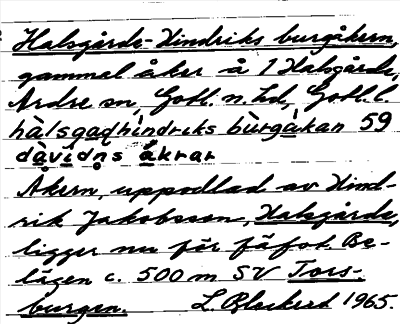 Halsgårds-Hindriks burgåkern,
gammal åker å 1 Halsgårds,
Ardre sn, Gotl. n. hd, Gotl. l.
hàlsgaḍhìndriks bùrgakan 59
dàvidn̥s åkrar
Åkern, uppodlad av Hind-
rik Jakobsson, Halsgårds,
ligger nu för fäfot. Be-
lägen c. 500 m SV Tors-
burgen. L. 1965.